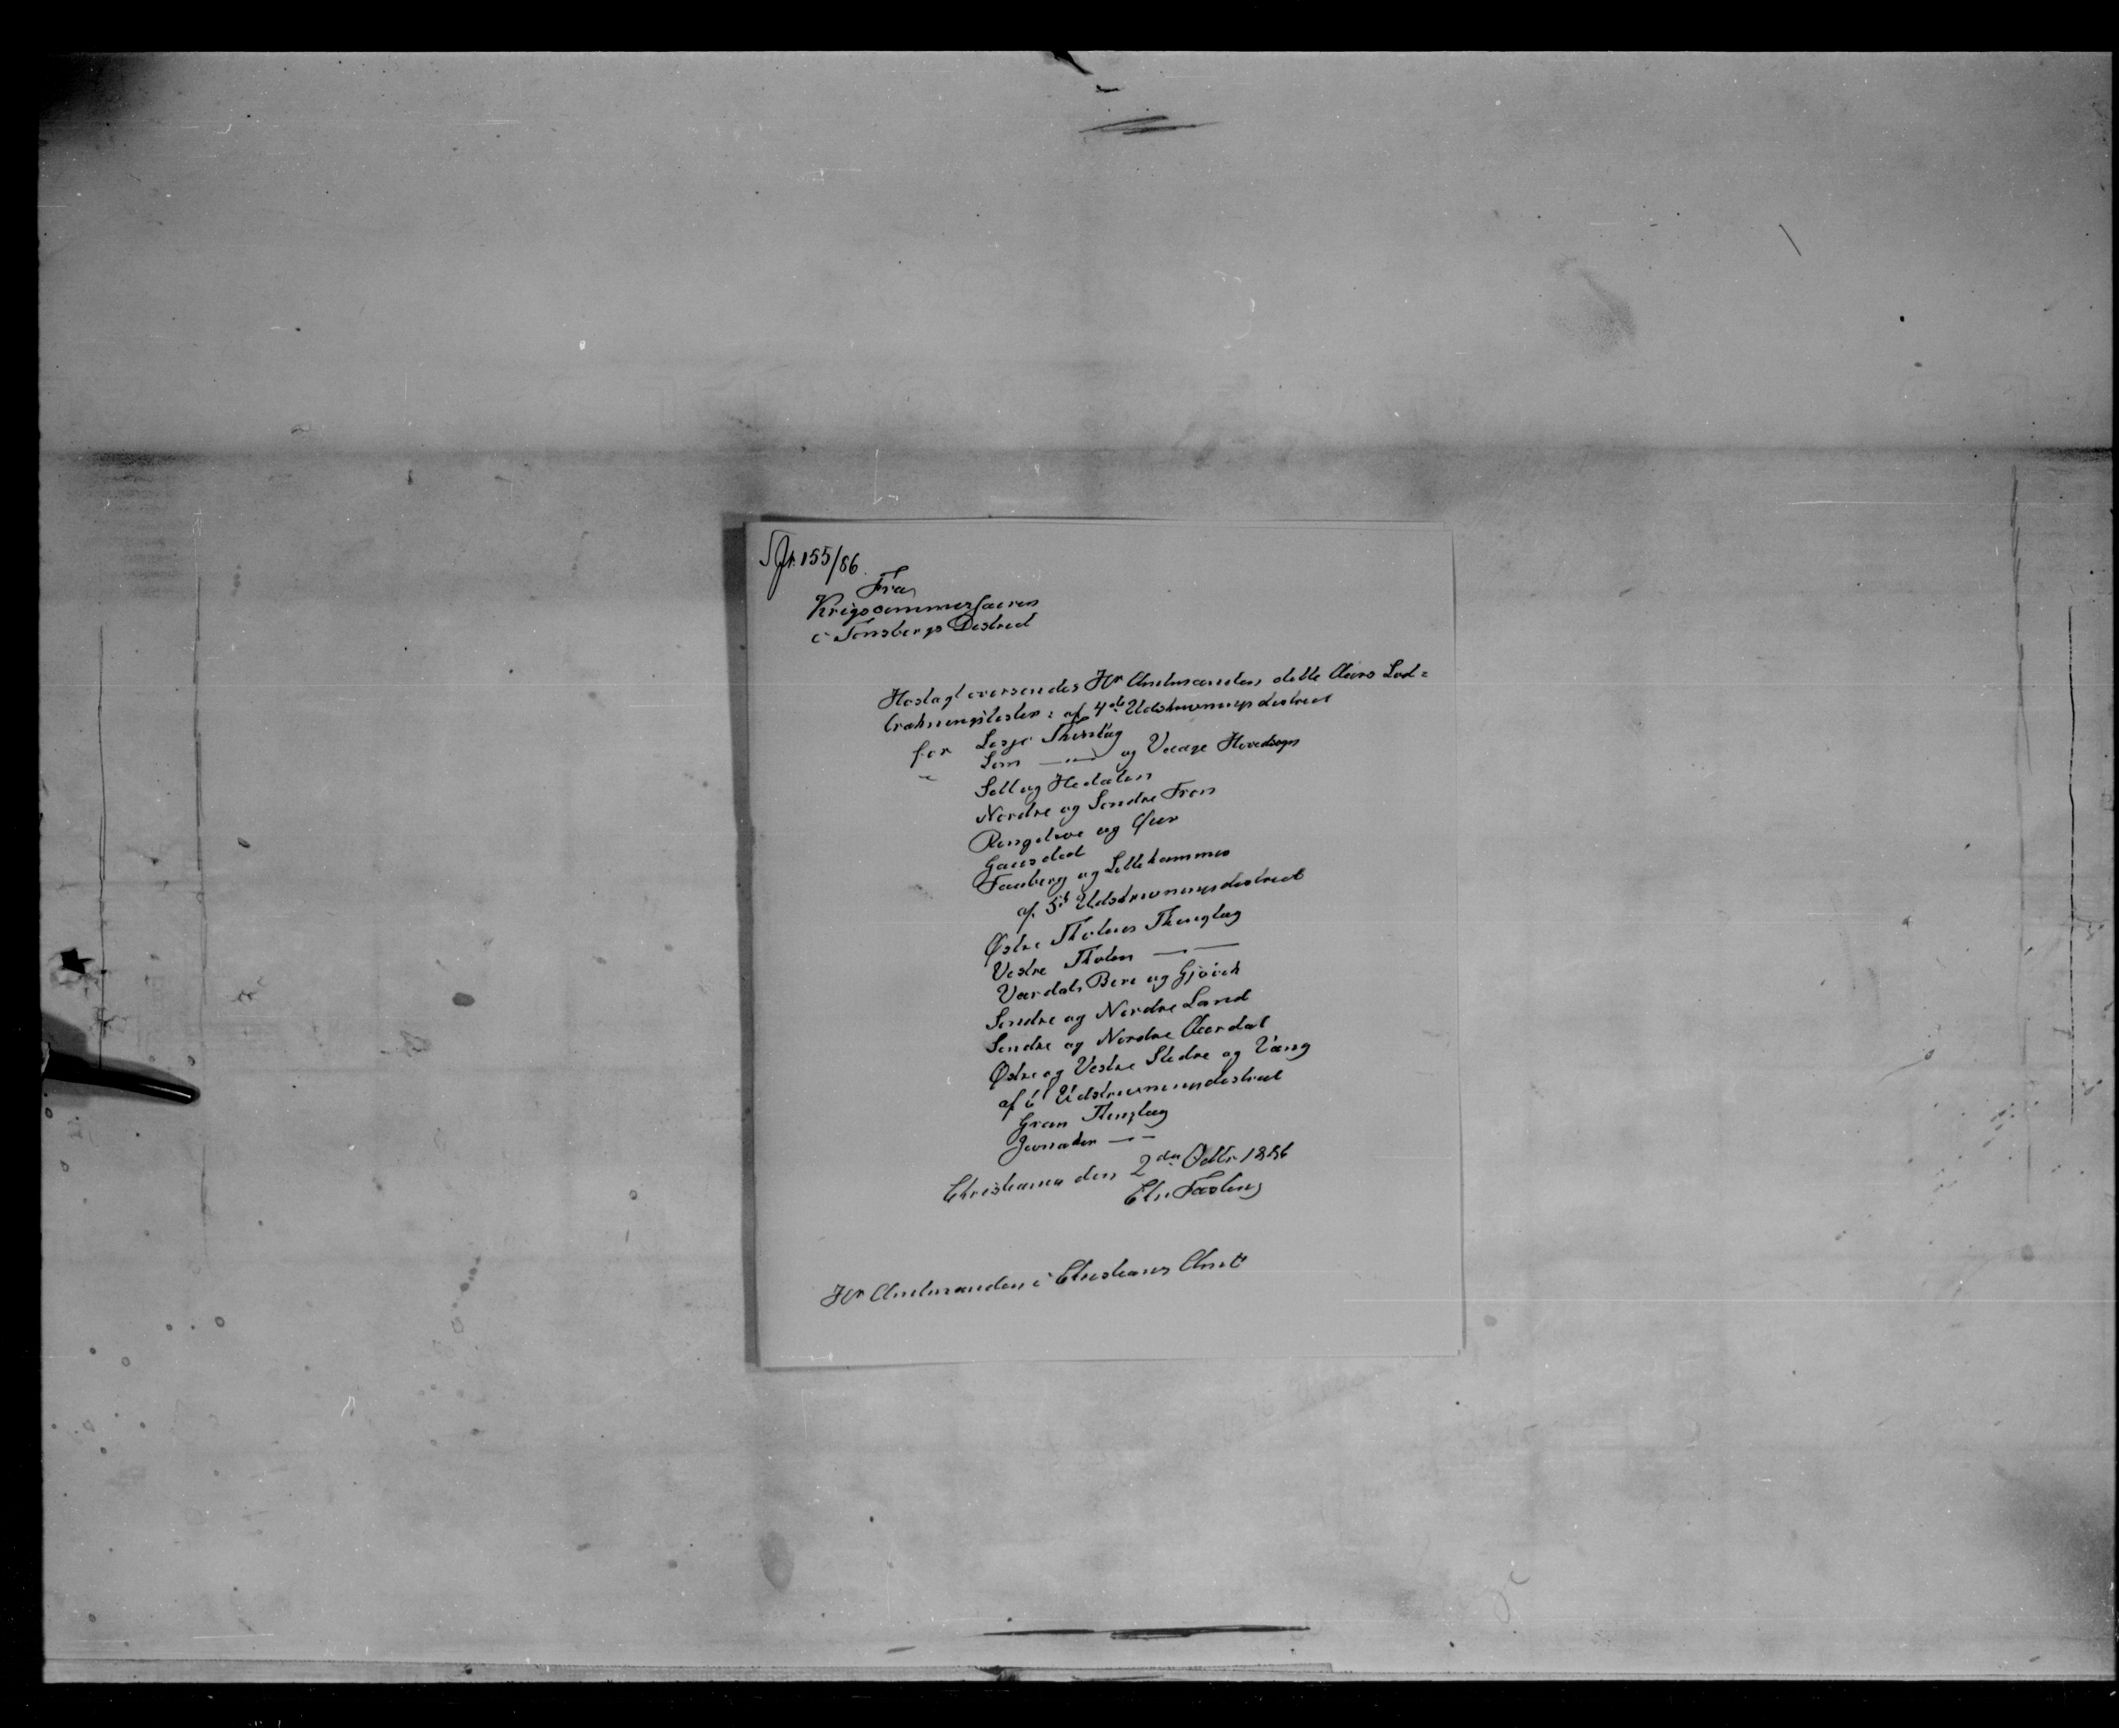 Jr. 155/86.
Fra
Krigscommersairen
i Tønsbergs District
Hoslagt oversendes Hr Amtmanden dette Aars Lod=
trækningslister: af 4de Udskrivningsdistrict
for Lesje Thinglag
" Lom —"— og Vaage Hovedsogn
Sell og Hedalen
Nordre og Søndre Fron
Ringebo og Øier
Gausdal
Faaberg og Lillehammer
af 5t Udskrivningsdistrict
Østre Thotens Thinglag
Vestre Thoten — —
Vardals Biri og Gjøvik
Søndre og Nordre Land
Søndre og Nordre Aurdal
Østre og Vestre Slidre og Vang
af 6t Udskrivningsdistrict
Gran Thinglag
Jevnaker — —
Christiania den 2den Octbr. 1886
Chr. Fasting
Hr Amtmanden i Christians Amt